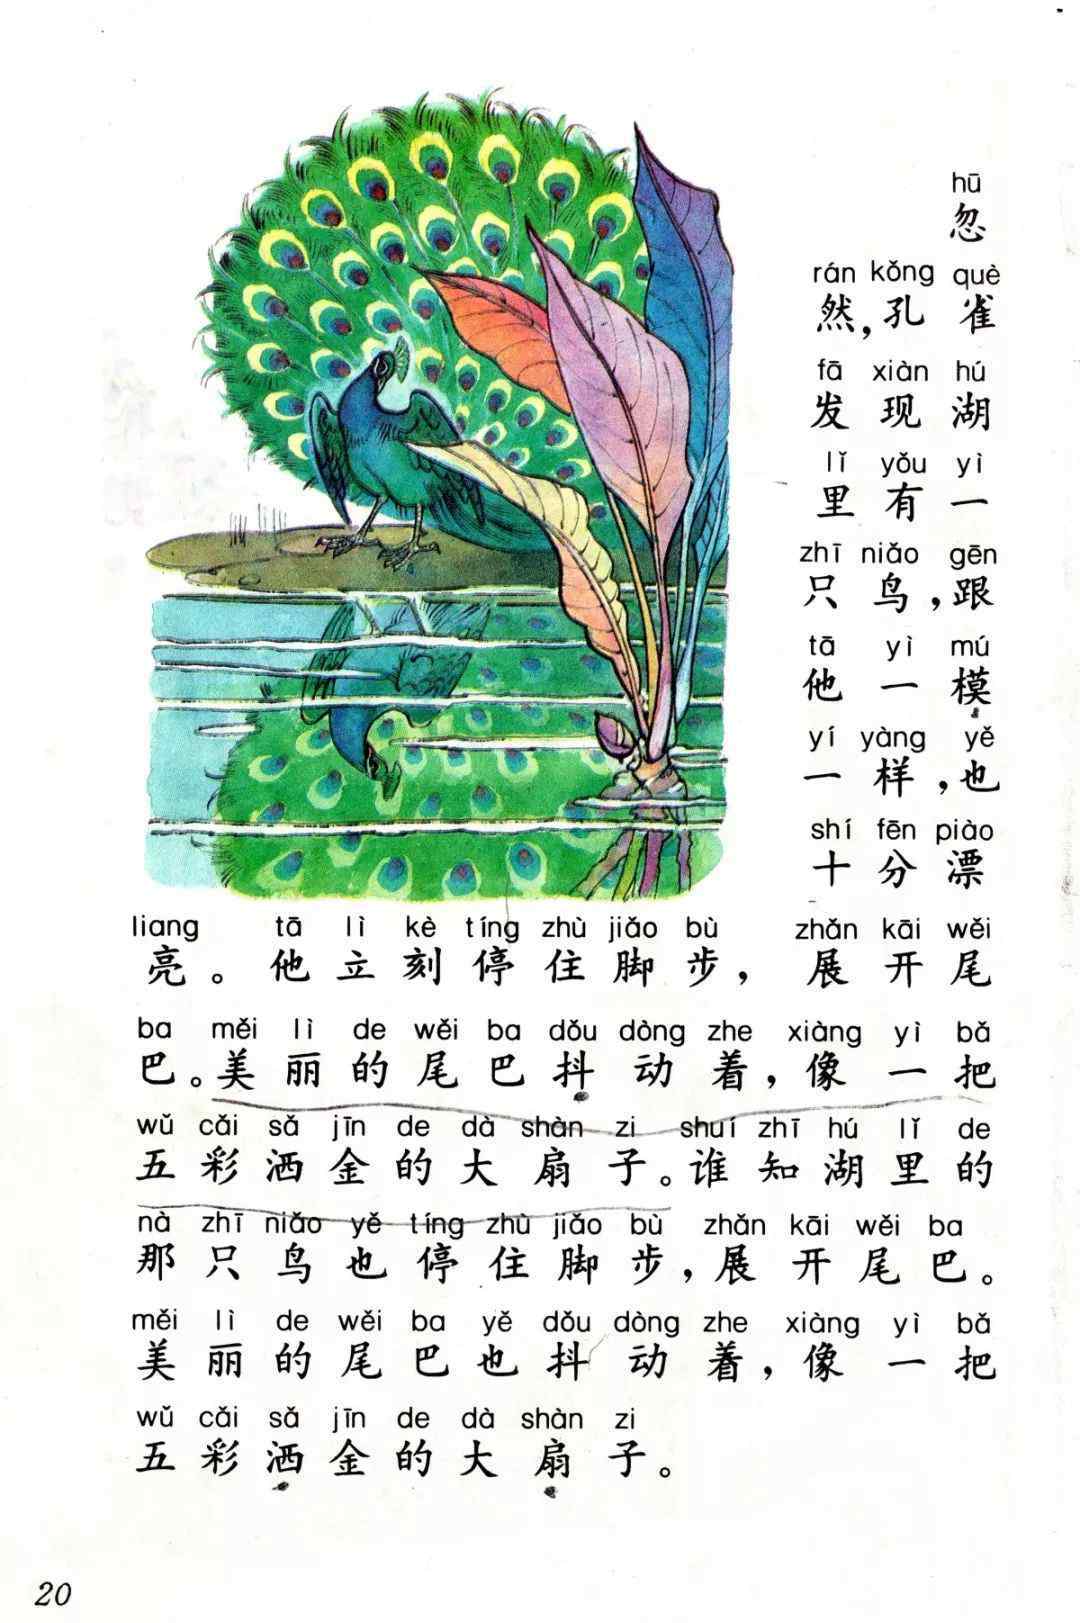 hū
忽
rán kǒng què
然，孔雀
fā xiàn hú
发现湖
lǐ yǒu yì
里有一
zhī niǎo gēn
只鸟，跟
tā yì mú
他一模
yí yàng yě
一样，也
shí fēn piào
十分漂
liang tā lì kè tíng zhù jiǎo bù zhǎn kāi wěi
亮。他立刻停住脚步，展开尾
ba měi lì de wěi ba dǒu dòng zhe xiàng yì bǎ
巴。美丽的尾巴抖动着，像一把
wǔ cǎi sǎ jīn de dà shàn zi shuí zhī hú lǐ de
五彩洒金的大扇子。谁知湖里的
nà zhī niǎo yě tíng zhù jiǎo bù zhǎn kāi wěi ba
那只鸟也停住脚步，展开尾巴。
měi lì de wěi ba yě dǒu dòng zhe xiàng yì bǎ
美丽的尾巴也抖动着，像一把
wǔ cǎi sǎ jīn de dà shàn zi
五彩洒金的大扇子。
20